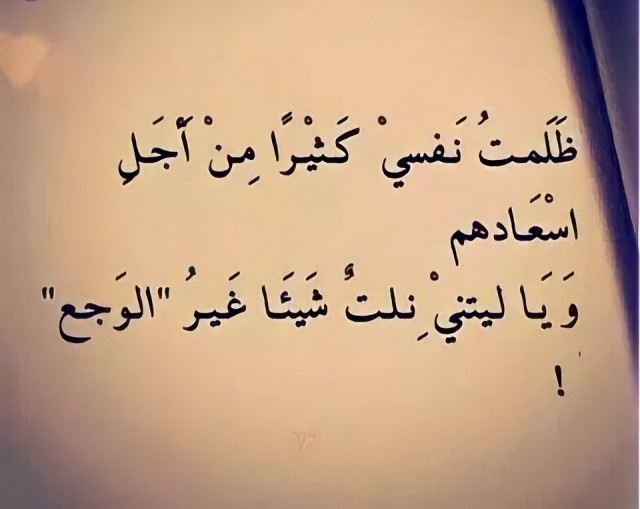 ظَلَمتُ نَفسيْ كَثيْرًا مِنْ أَجَلِ
اسْعَادهم
وَيَا ليتنيْ نِلتٌ شَيئَا غَيرُ "الوَجع"
!